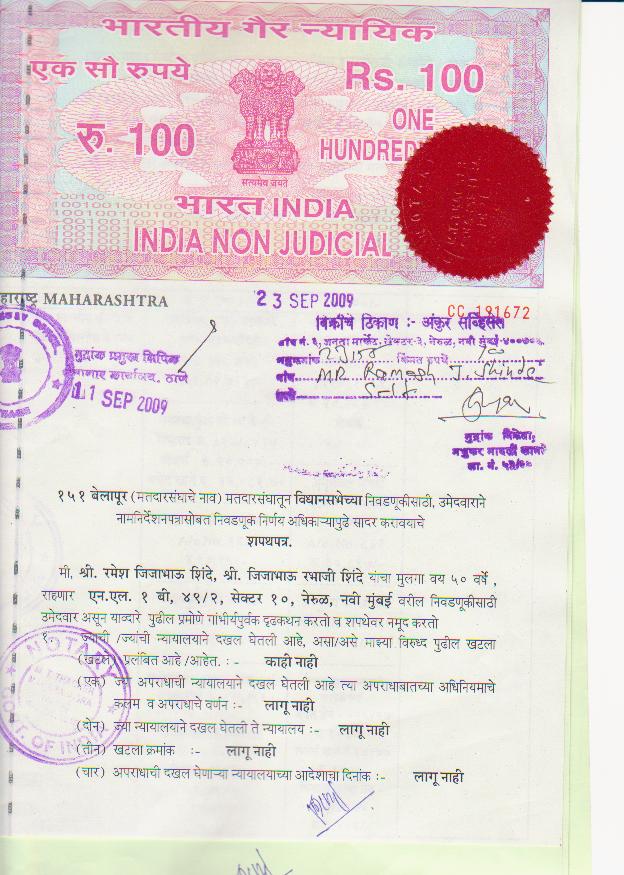 भारतीय गैर न्यायिक
एक सौ रुपये
Rs. 100
रु. 100
ONE
HUNDRED
सत्यमेव जयते
भारत INDIA
INDIA NON JUDICIAL
महाराष्ट्र MAHARASHTRA
23 SEP 2009
CC 191672
विक्रीचे ठिकाण :- अंकुर सर्व्हिसेस
मुद्रांक प्रमुख लिपिक
कोषागार कार्यालय, ठाणे
11 SEP 2009
MR Ramesh J. Shinde
Self
मुद्रांक विक्रेता,
१५१ बेलापूर (मतदारसंघाचे नाव) मतदारसंघातून विधानसभेच्या निवडणूकीसाठी, उमेदवाराने
नामनिर्देशनपत्रासोबत निवडणूक निर्णय अधिकाऱ्यापुढे सादर करावयाचे
शपथपत्र.
मी, श्री. रमेश जिजाभाऊ शिंदे, श्री. जिजाभाऊ रभाजी शिंदे यांचा मुलगा वय ५० वर्षे ,
राहणार एन.एल. १ बी, ४९/२, सेक्टर १०, नेरुळ, नवी मुंबई वरील निवडणूकीसाठी
उमेदवार असून याव्दारे पुढील प्रमाणे गांभीर्यपुर्वक दृढकथन करतो व शपथेवर नमूद करतो
१. ज्याची /ज्यांची न्यायालयाने दखल घेतली आहे, असा/असे माझ्या विरुध्द पुढील खटला
(खटले) प्रलंबित आहे /आहेत. : - काही नाही
(एक) ज्या अपराधाची न्यायालयाने दखल घेतली आहे त्या अपराधाबातच्या अधिनियमाचे
कलम व अपराधाचे वर्णन :- लागू नाही
(दोन) ज्या न्यायालयाने दखल घेतली ते न्यायालय :- लागू नाही
(तीन) खटला क्रमांक :- लागू नाही
(चार) अपराधाची दखल घेणाऱ्या न्यायालयाच्या आदेशाचा दिनांक :- लागू नाही
NOTARY
GOVT. OF INDIA